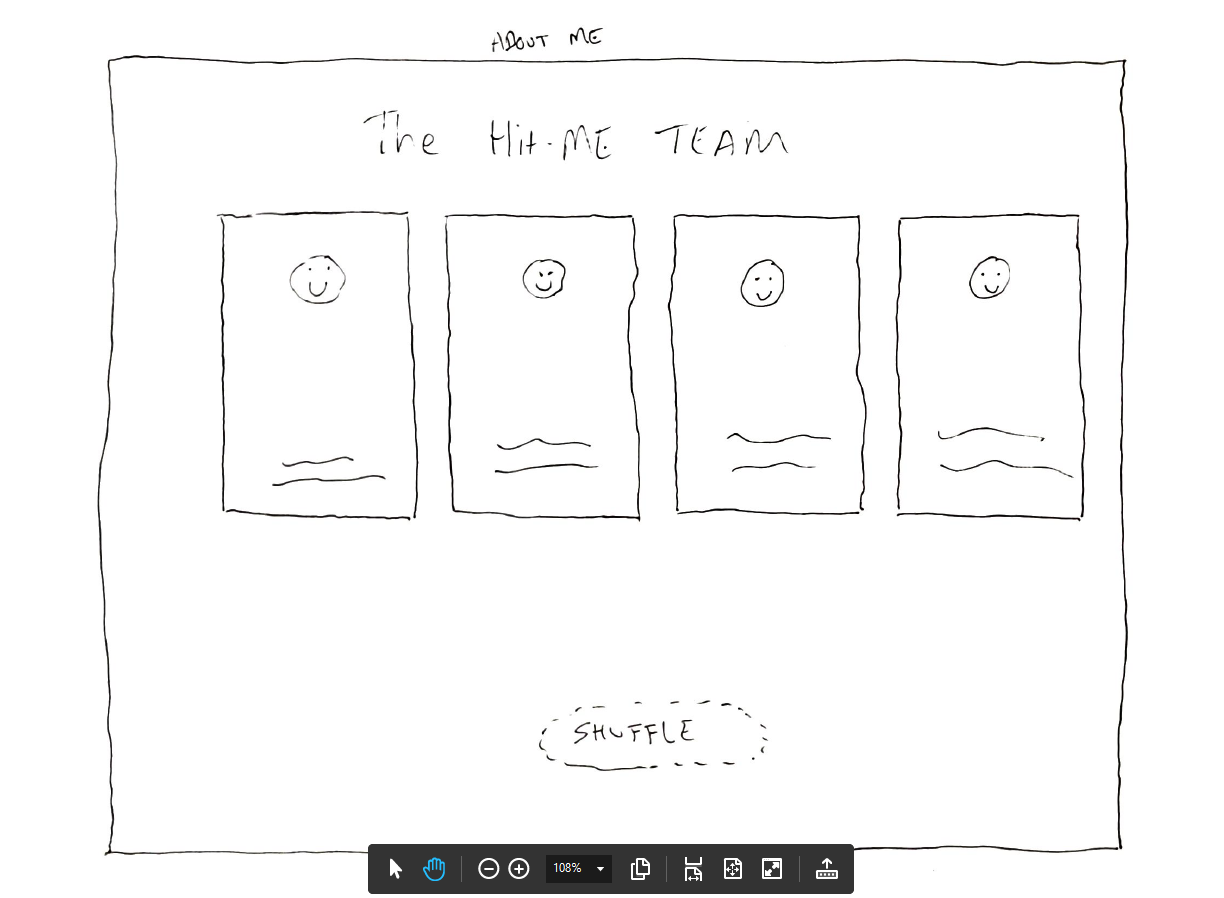 ABOUT ME
The Hit-ME TEAM
SHUFFLE
108%